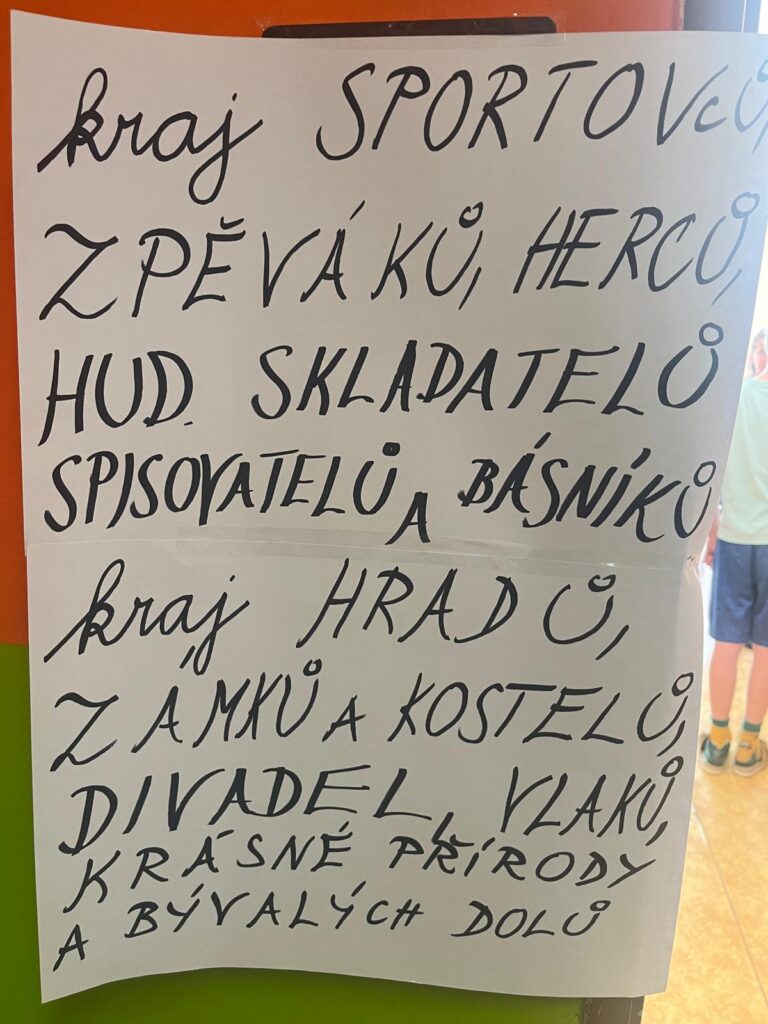 kraj SPORTOVcŮ,
ZPĚVÁKŮ, HERCŮ,
HUD. SKLADATELŮ
SPISOVATELŮ A BÁSNÍKŮ
kraj HRADŮ,
ZÁMKŮ A KOSTELŮ,
DIVADEL, VLAKŮ,
KRÁSNÉ PŘÍRODY
A BÝVALÝCH DOLŮ